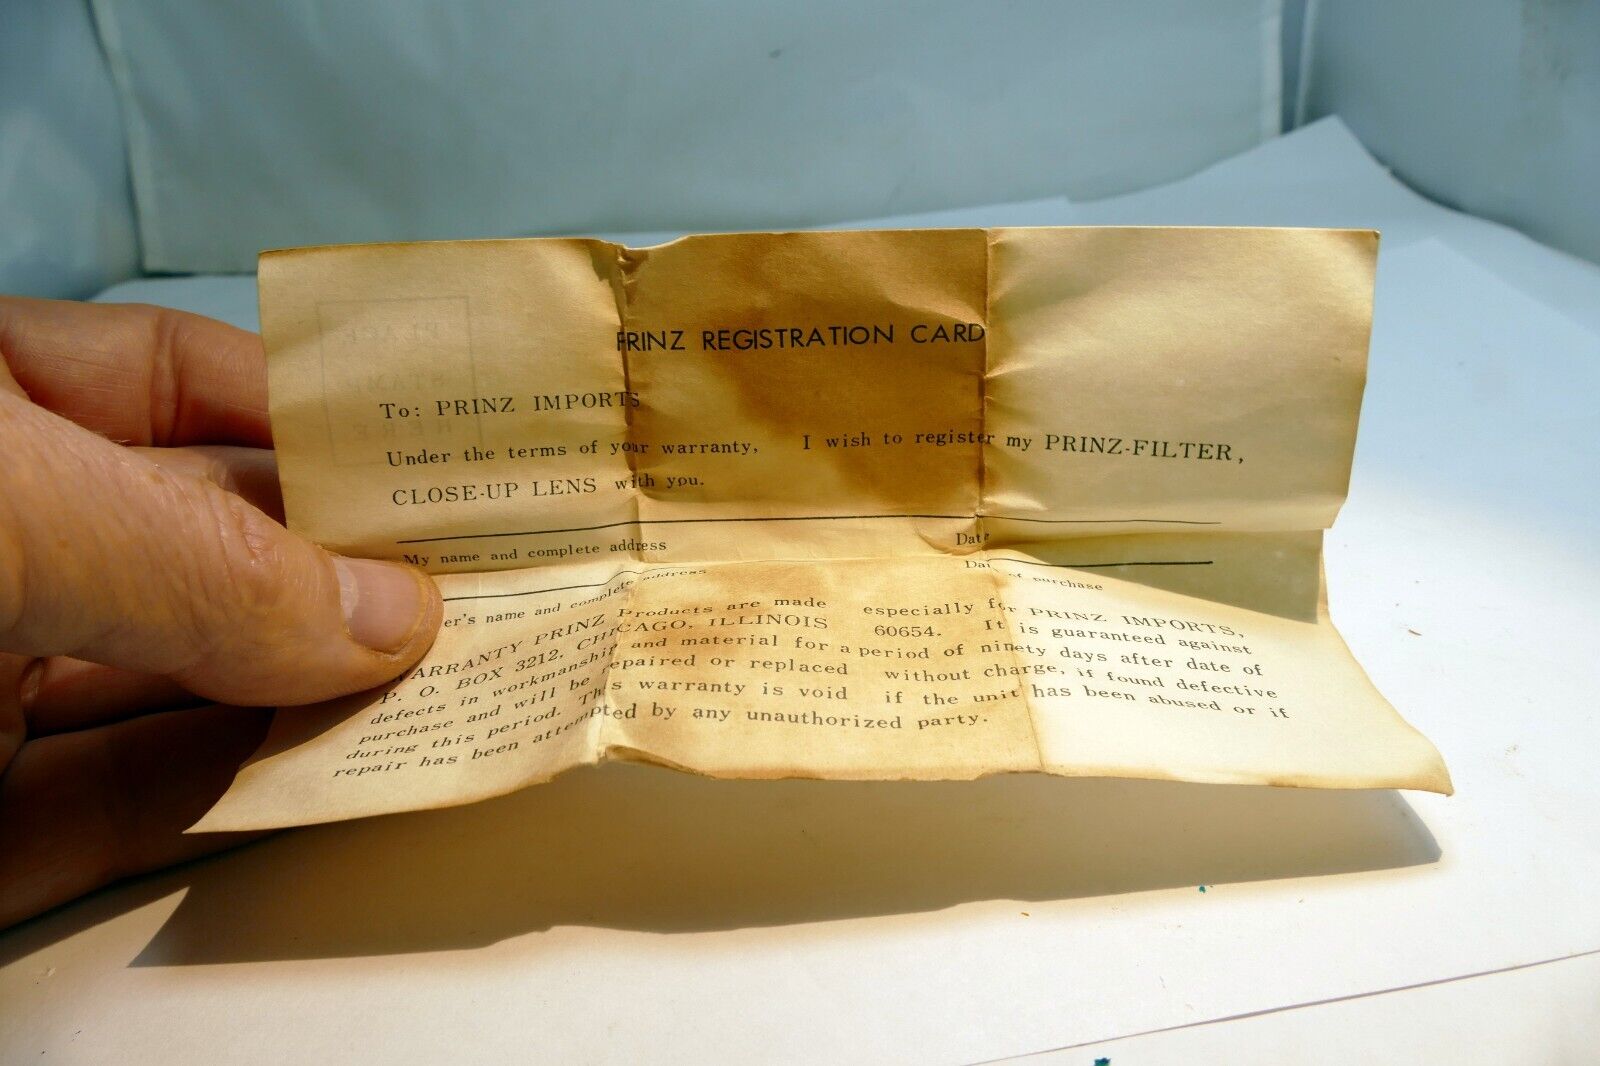 PRINZ REGISTRATION CARD
To: PRINZ IMPORTS
Under the terms of your warranty, I wish to register my PRINZ-FILTER,
CLOSE-UP LENS with you.
My name and complete address Date
name and complete address Date of purchase
WARRANTY PRINZ Products are made especially for PRINZ IMPORTS,
P. O. BOX 3212, CHICAGO, ILLINOIS 60654. It is guaranteed against
defects in workmanship and material for a period of ninety days after date of
purchase and will be repaired or replaced without charge, if found defective
during this period. This warranty is void if the unit has been abused or if
repair has been attempted by any unauthorized party.
PLACE
STAMP
HERE